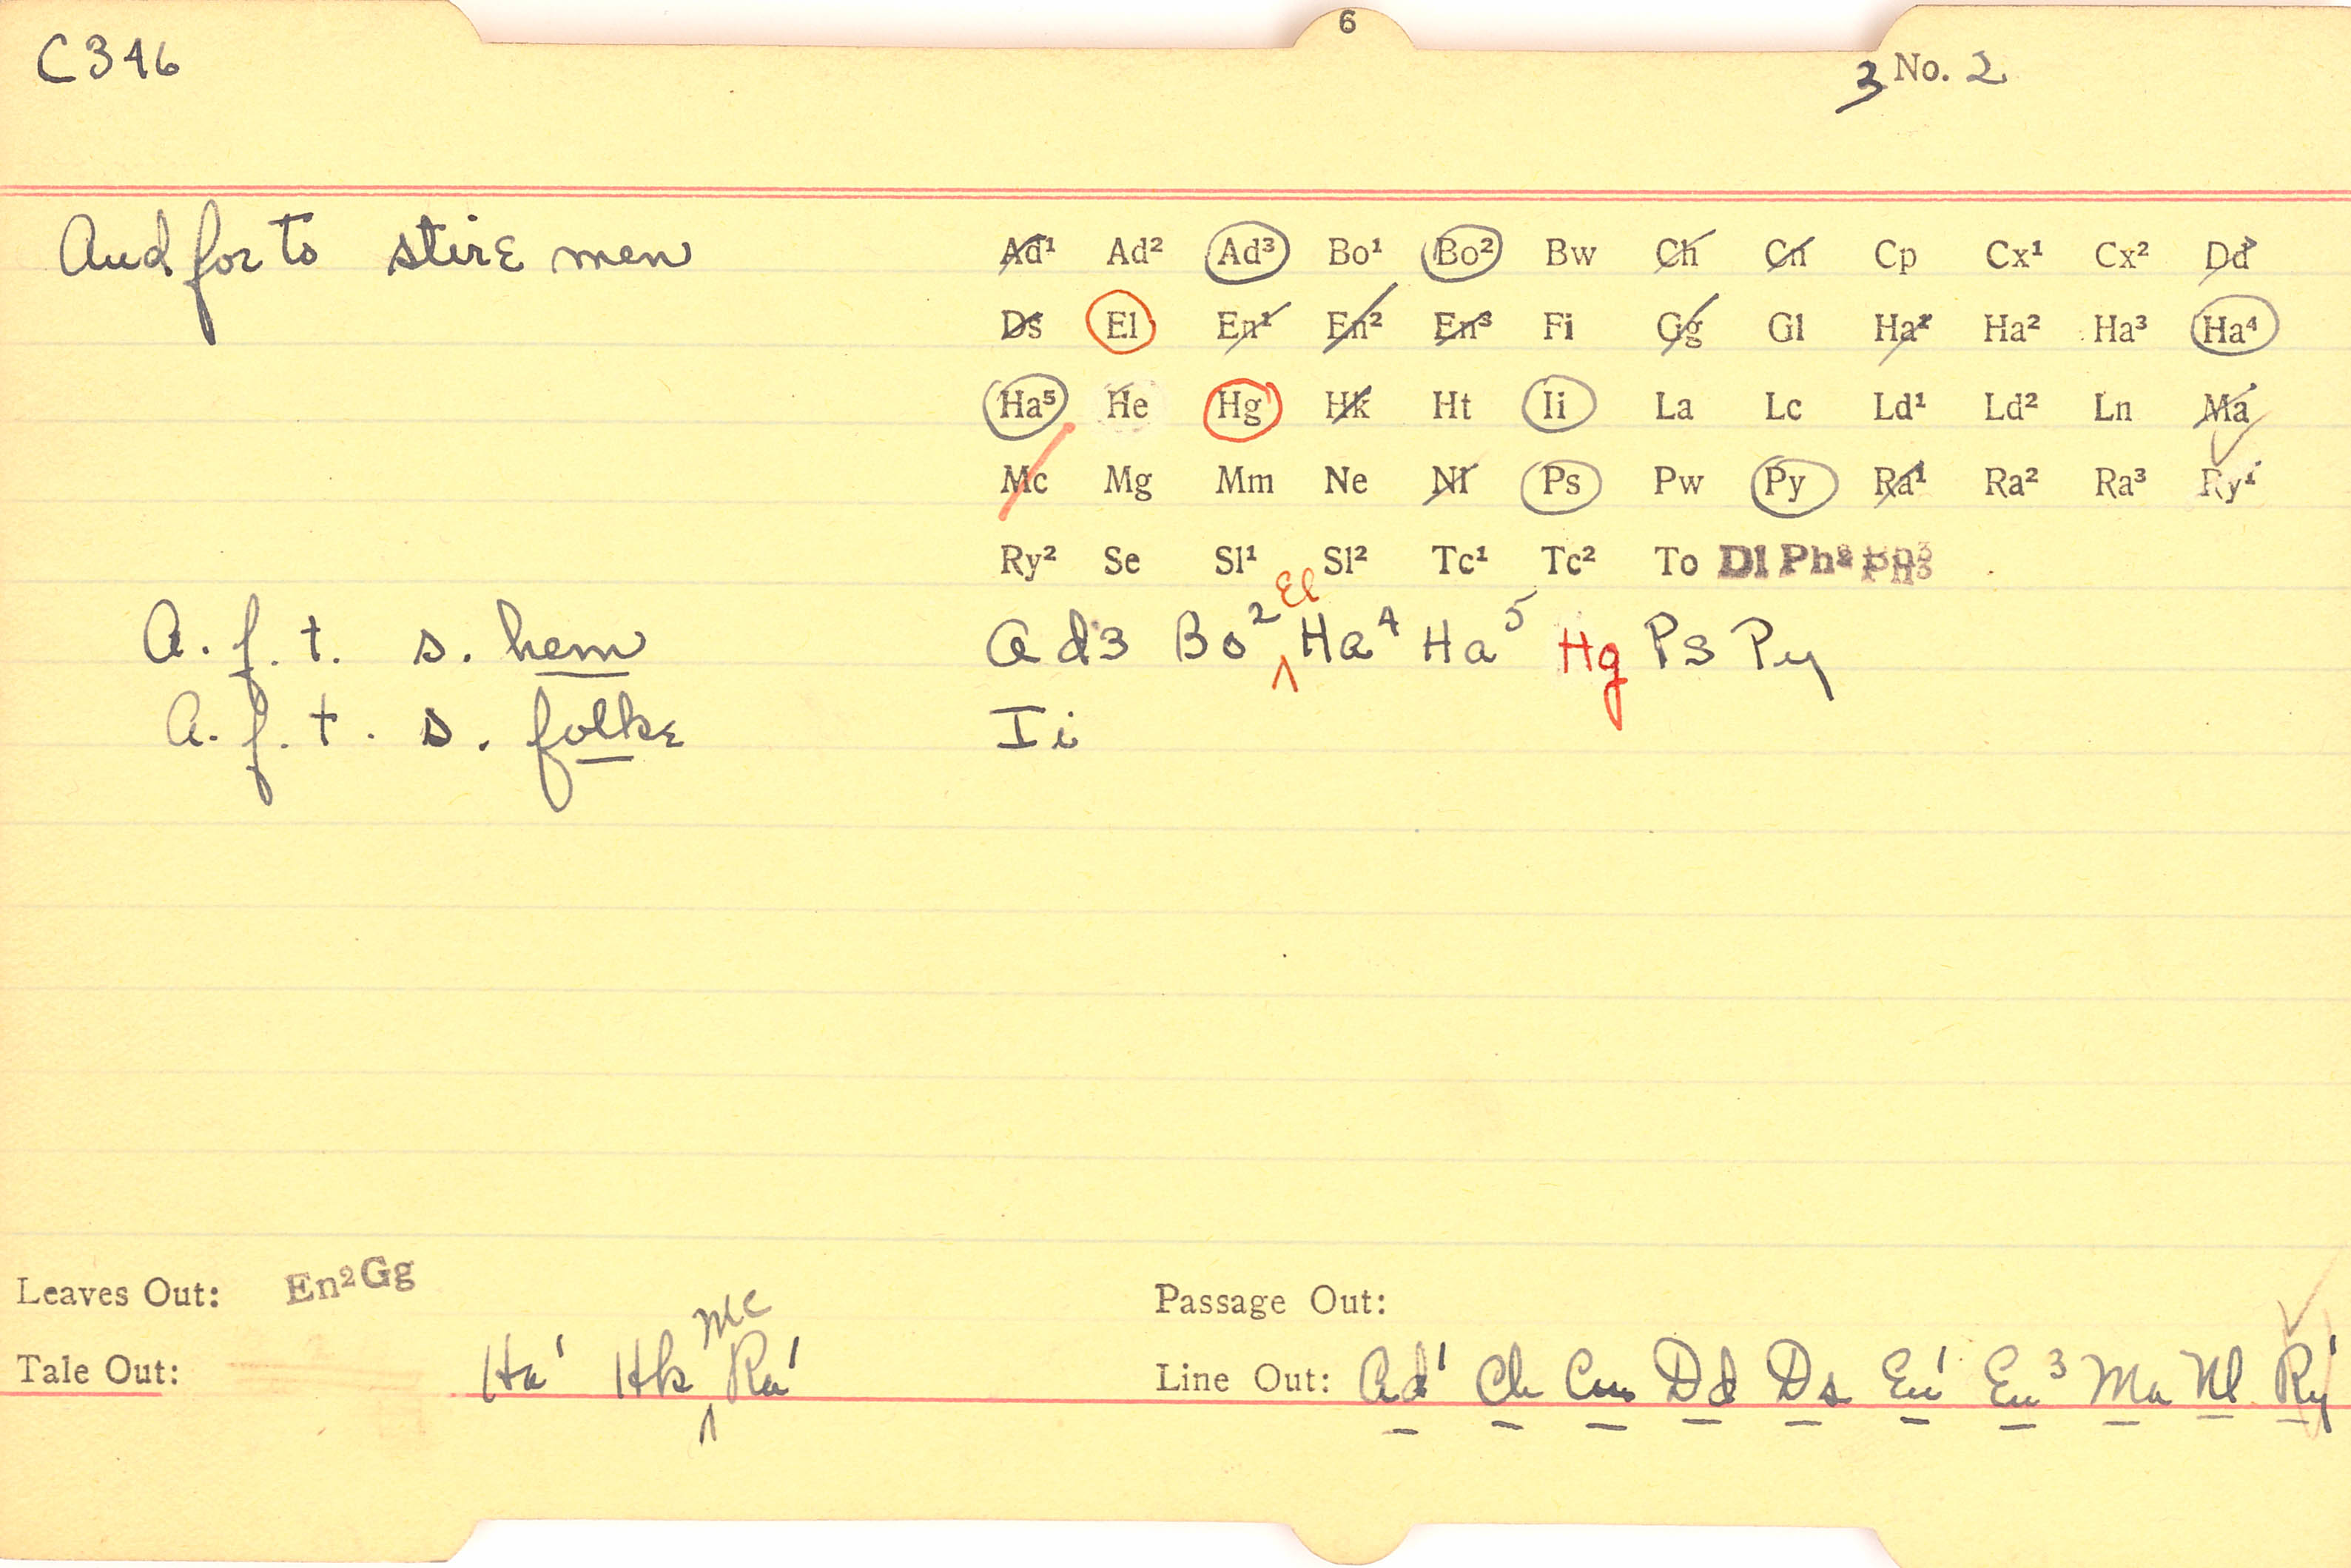 6
C346
3 No. 2
And for to stire men
Ad¹ Ad² Ad³ Bo¹ Bo² Bw Ch Cn Cp Cx¹ Cx² Dd
Ds El En¹ En² En³ Fi Gg Gl Ha¹ Ha² Ha³ Ha⁴
Ha⁵ He Hg Hk Ht Ii La Lc Ld¹ Ld² Ln Ma
Mc Mg Mm Ne Nl Ps Pw Py Ra¹ Ra² Ra³ Ry¹
Ry² Se Sl¹ Sl² Tc¹ Tc² To Dl Ph²
A. f. t. s. hem Ad3 Bo² El Ha⁴ Ha⁵ Hg Ps Py
A. f. t. s. folke Ii
Leaves Out: En²Gg
Passage Out:
Tale Out: Ha¹ Hk Mc Ra¹
Line Out: Ad¹ Ch Cn Dd Ds En¹ En³ Ma Nl Ry¹